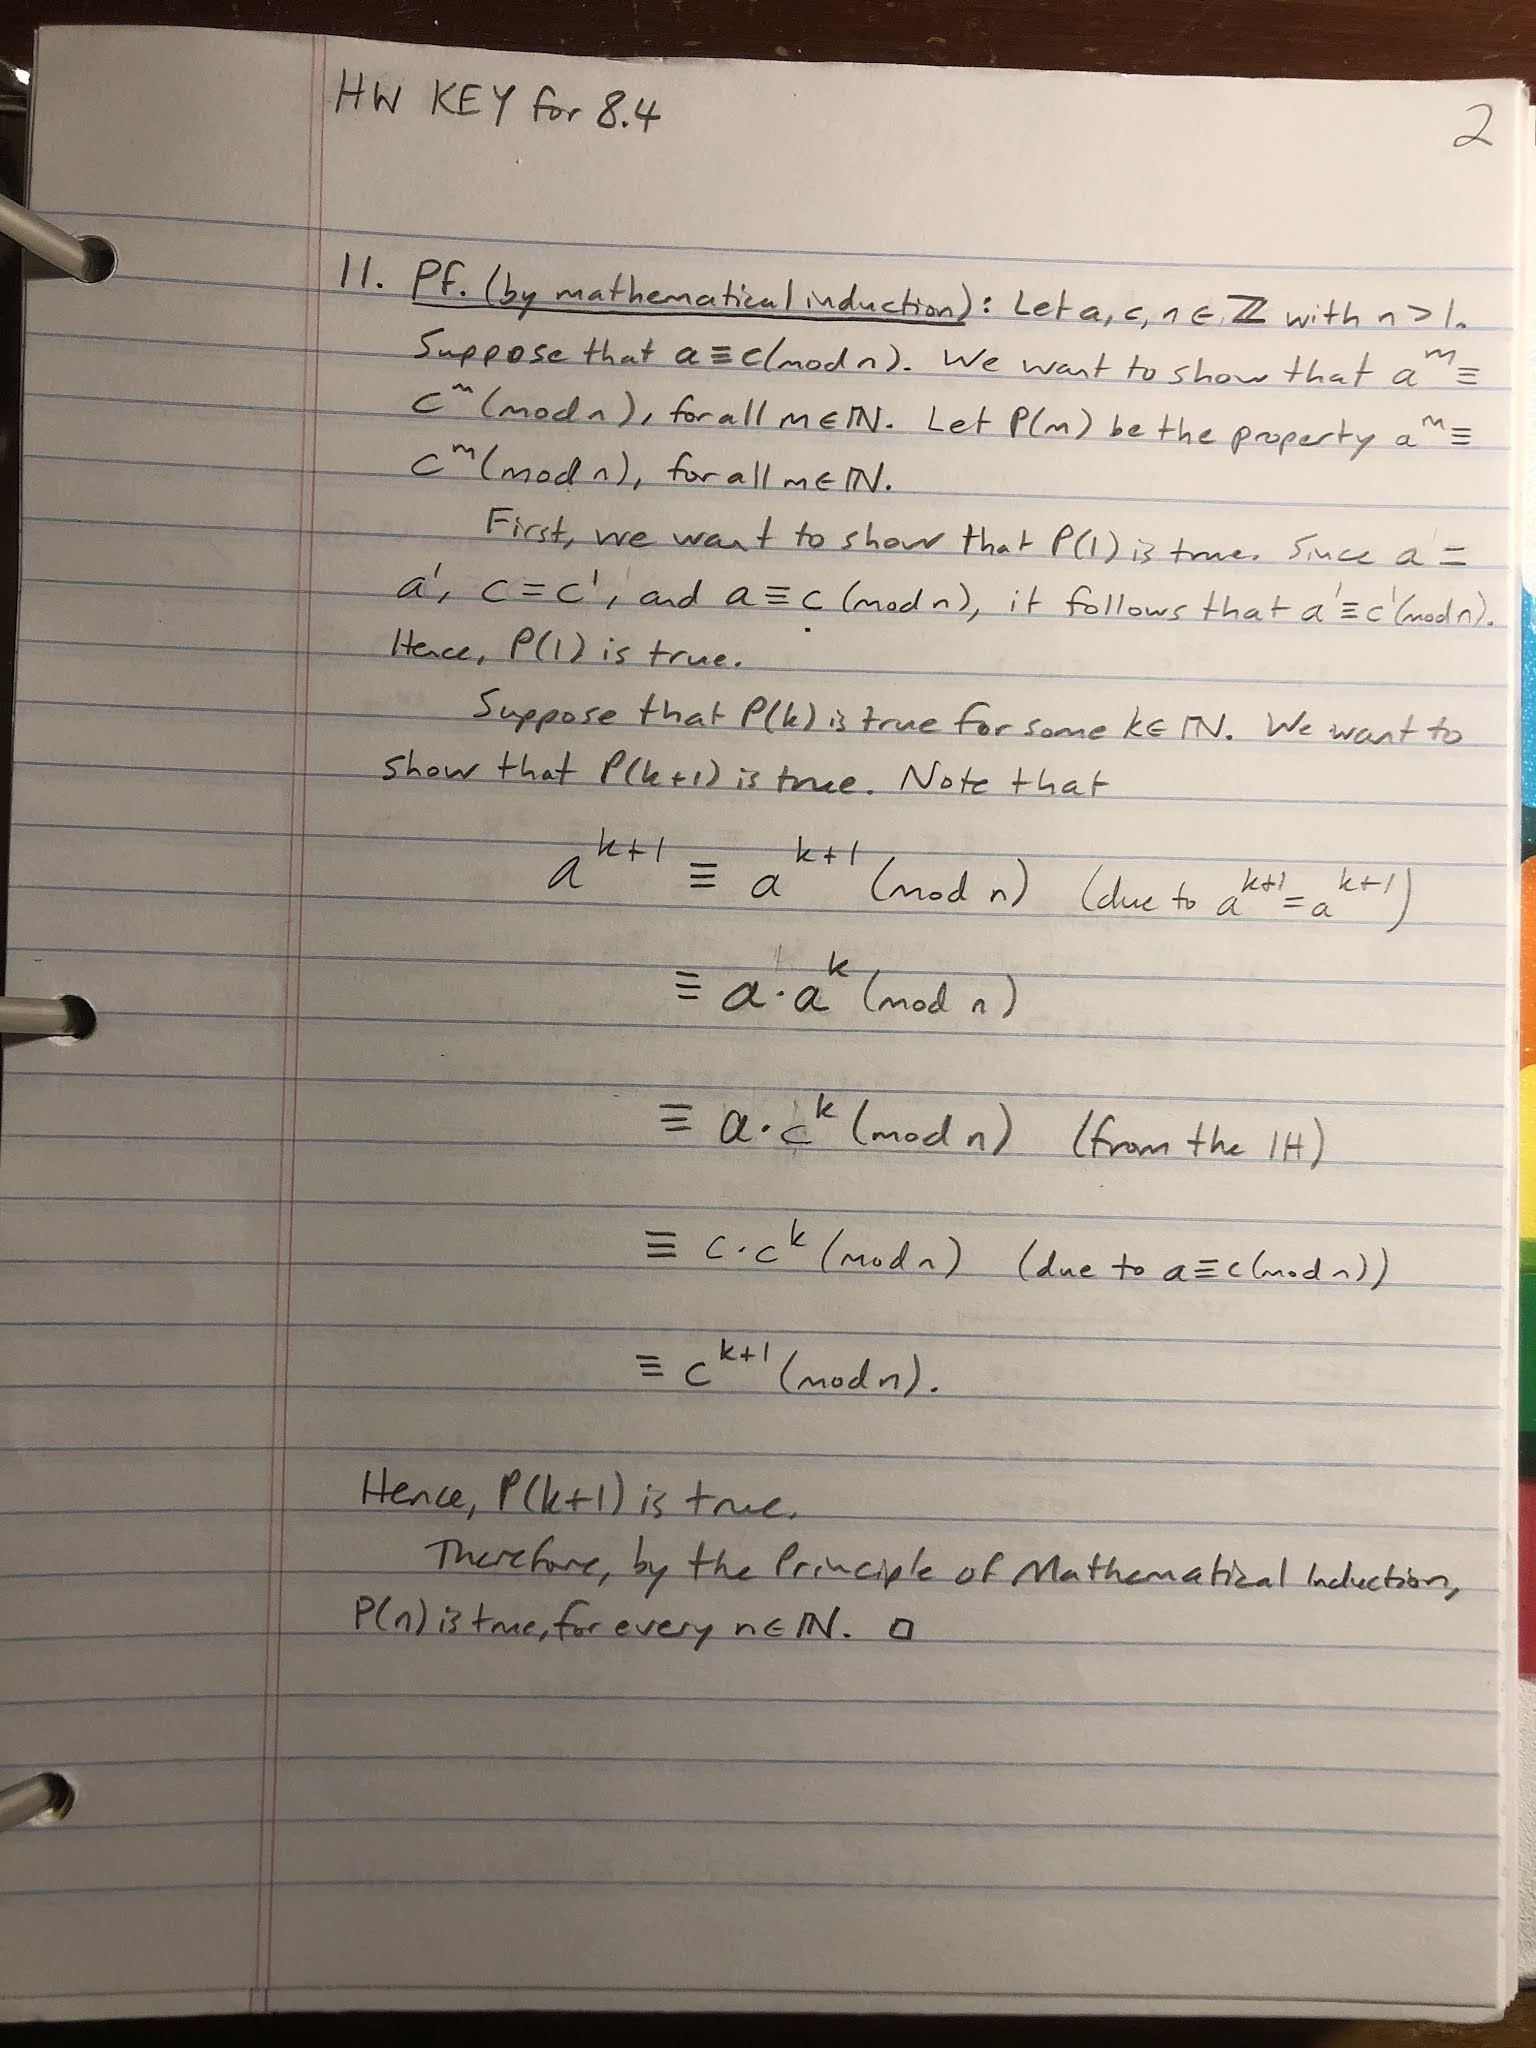 HW KEY for 8.4
2
11. Pf. (by mathematical induction): Let a, c, n ∈ ℤ with n > 1.
Suppose that a ≡ c (mod n). We want to show that a^m ≡
c^m (mod n), for all m ∈ ℕ. Let P(m) be the property a^m ≡
c^m (mod n), for all m ∈ ℕ.
First, we want to show that P(1) is true. Since a =
a¹, c = c¹, and a ≡ c (mod n), it follows that a¹ ≡ c¹ (mod n).
Hence, P(1) is true.
Suppose that P(k) is true for some k ∈ ℕ. We want to
show that P(k+1) is true. Note that
a^{k+1} ≡ a^{k+1} (mod n) (due to a^{k+1} = a^{k+1})
≡ a · a^k (mod n)
≡ a · c^k (mod n) (from the IH)
≡ c · c^k (mod n) (due to a ≡ c (mod n))
≡ c^{k+1} (mod n).
Hence, P(k+1) is true.
Therefore, by the Principle of Mathematical Induction,
P(n) is true, for every n ∈ ℕ. □